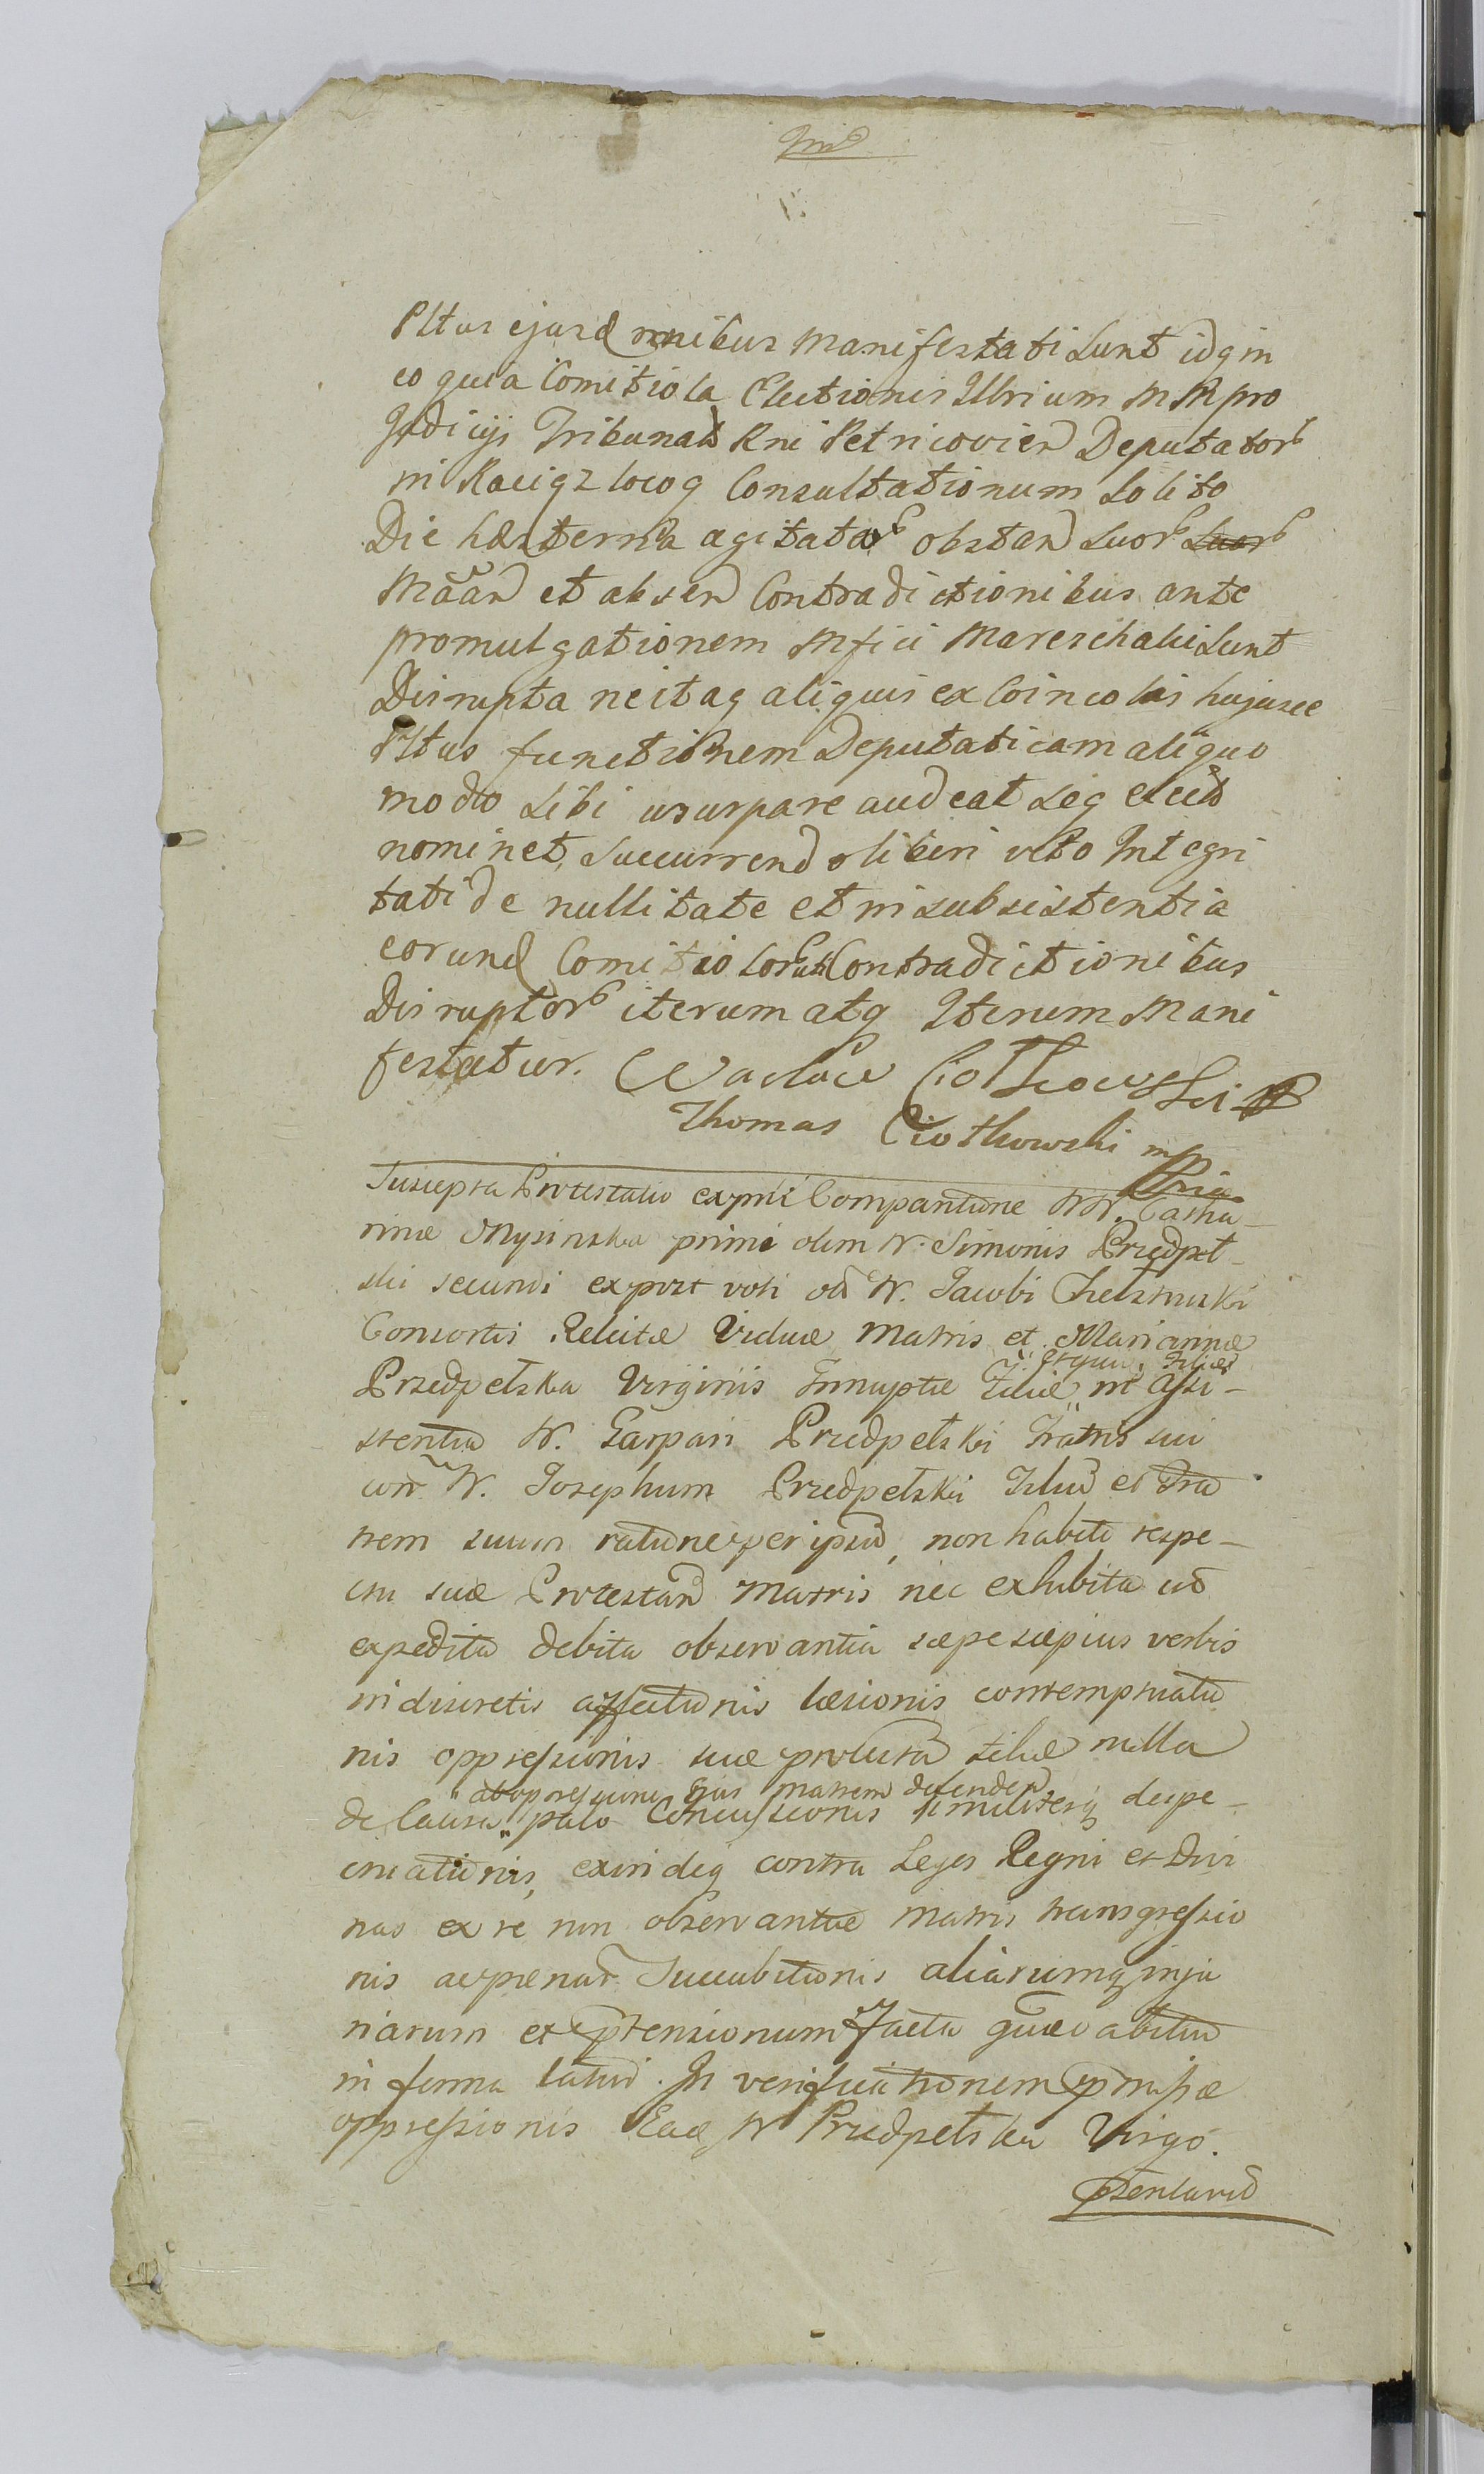 Pltus ejusd mnibus Manifestati sunt idq in
eo quia Comitiola Electionis Illrium M M pro
Judicijs Tribunals Rni Petricovien Deputator
in Raciąz locoq Consultationum Solito
Die hesterna agitator obstan suor suor
Mãan et absen Contradictionibus ante
promulgationem Mfici Mareschalli sunt
Disrupta ne itaq aliquis ex Coincolis hujusce
Pltus functionem Deputaticam aliquo
modo sibi usurpare audeat seq elects
nominet, Succurrendo liberi veto Integri
tati de nullitate et insubsistentia
eorund Comitiolor uti Contradictionibus
Disruptor iterum atq Iterum Mani
festatur. Wacław Ciołkowski
Thomas Ciołkowski mp
Suscepta Protestatio ex pnti Comparitione W W. Catha-
rinæ Mysinska primi olim W. Simonis Przedpeł-
ski secundi ex post voti od W. Jacobi Chelstuski
Consortis Relictæ Viduæ Matris et Mariannæ
Przedpełska Virginis Innuptæ Filiæ in Assi-
stentia W. Gaspari Przedpełski Fratris sui
con W. Josephum Przedpełski Filiu et Fra
trem suum ratione per ipsũ, non habiti respe-
ctu suæ Protestan Matris nec exhibita ud
expedita debita observantia sæpe sæpius verbis
indiscretis affectionis læsionis contemptuatio
nis oppressionis suæ Filiæ nulla
ab oppressione Ejus matrem defenden
de Causa palo Concussionis similiterq despe-
ctuationis, exindeq contra Leges Regni et Divi
nas ex re non observantiæ Matris transgressio
nis acpænar Succubitionis aliarumq inju
riarum et ptensionum Facta
in forma latiori. In verificationem pmissæ
oppressionis Ead W Przedpełska Virgo.
psentavit